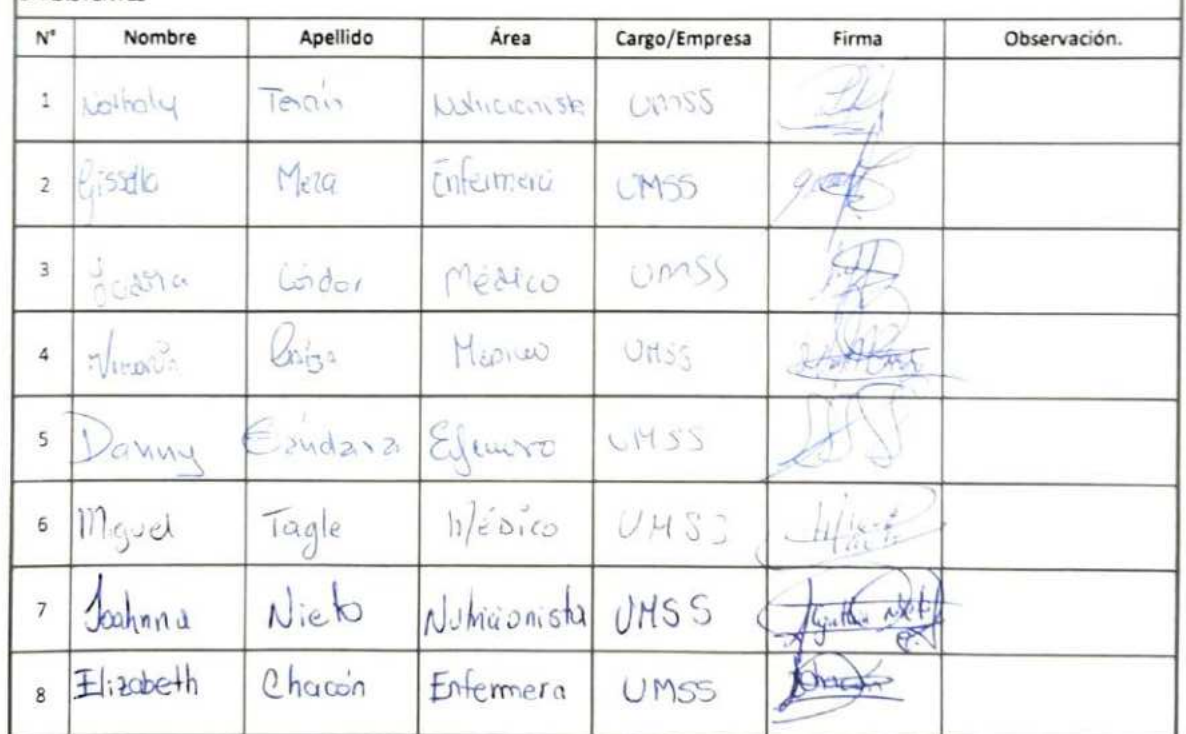 N° Nombre Apellido Área Cargo/Empresa Firma Observación.
1 Nathaly Terán Nutricionista UMSS
2 Gissella Meza Enfermera UMSS
3 Médico UMSS
4 Médico UMSS
5 Danny UMSS
6 Miguel Tagle Médico UMSS
7 Joahnna Nieto Nutricionista UMSS
8 Elizabeth Chacón Enfermera UMSS